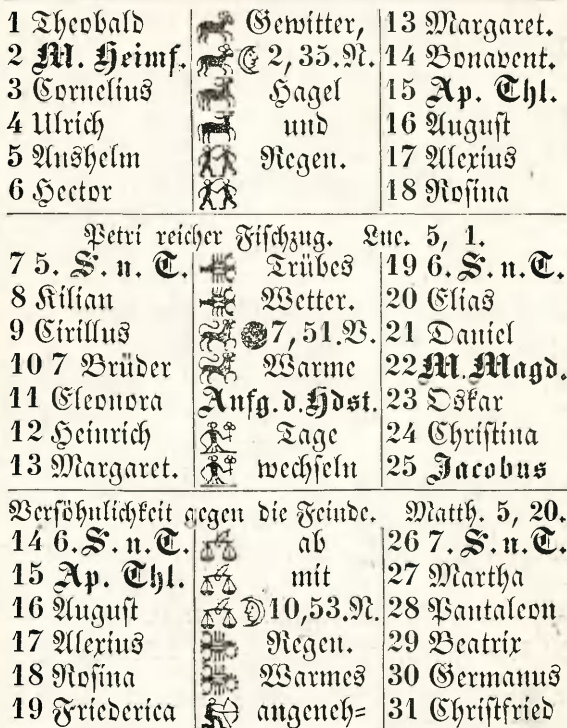 1 Theobald Gewitter, 13 Margaret.
2 M. Heimf. ☾ 2, 35. N. 14 Bonavent.
3 Cornelius Hagel 15 Ap. Thl.
4 Ulrich und 16 August
5 Anshelm Regen. 17 Alexius
6 Hector 18 Rosina
Petri reicher Fischzug. Luc. 5, 1.
7 5. S. n. T. Trübes 19 6. S. n. T.
8 Kilian Wetter. 20 Elias
9 Cirillus 7, 51. V. 21 Daniel
10 7 Brüder Warme 22 M. Magd.
11 Eleonora Anfg. d. Hdst. 23 Oskar
12 Heinrich Tage 24 Christina
13 Margaret. wechseln 25 Jacobus
Versöhnlichkeit gegen die Feinde. Matth. 5, 20.
14 6. S. n. T. ab 26 7. S. n. T.
15 Ap. Thl. mit 27 Martha
16 August ☽ 10, 53. N. 28 Pantaleon
17 Alexius Regen. 29 Beatrix
18 Rosina Warmes 30 Germanus
19 Friederica angeneh= 31 Christfried